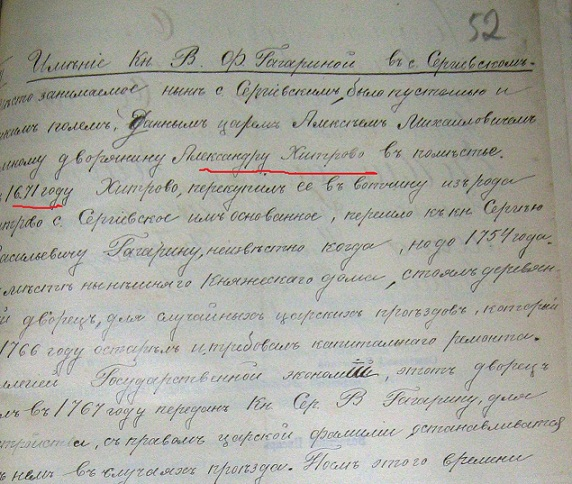 52
Имѣніе Кн. В. Ѳ. Гагариной въ с. Сергіевскомъ.
ѣсто занимаемое нынѣ с Сергіевскимъ, было пустошью и
кимъ полемъ, Даннымъ царемъ Алексѣемъ Михаиловичемъ
мному дворянину Александру Хитрово въ помѣстье.
1671 году Хитрово, перекупилъ ее въ вотчину изъ рода
итрово с. Сергіевское имъ основанное, перешло къ кн. Сергѣю
асильевичу Гагарину, неизвѣстно когда, но до 1754 года.
мѣстѣ нынѣшняго Княжескаго дома, стоялъ деревян-
й дворецъ, для случайныхъ царскихъ проѣздовъ, который
1766 году остарѣлъ и требовалъ капитальнаго ремонта.
легіей Государственной экономіи, этотъ дворецъ
лъ въ 1767 году переданъ Кн. Сер. В Гагарину, для
съ правомъ царской фамиліи останавливатся
ъ немъ въ случаяхъ проѣзда. Послѣ этого времени